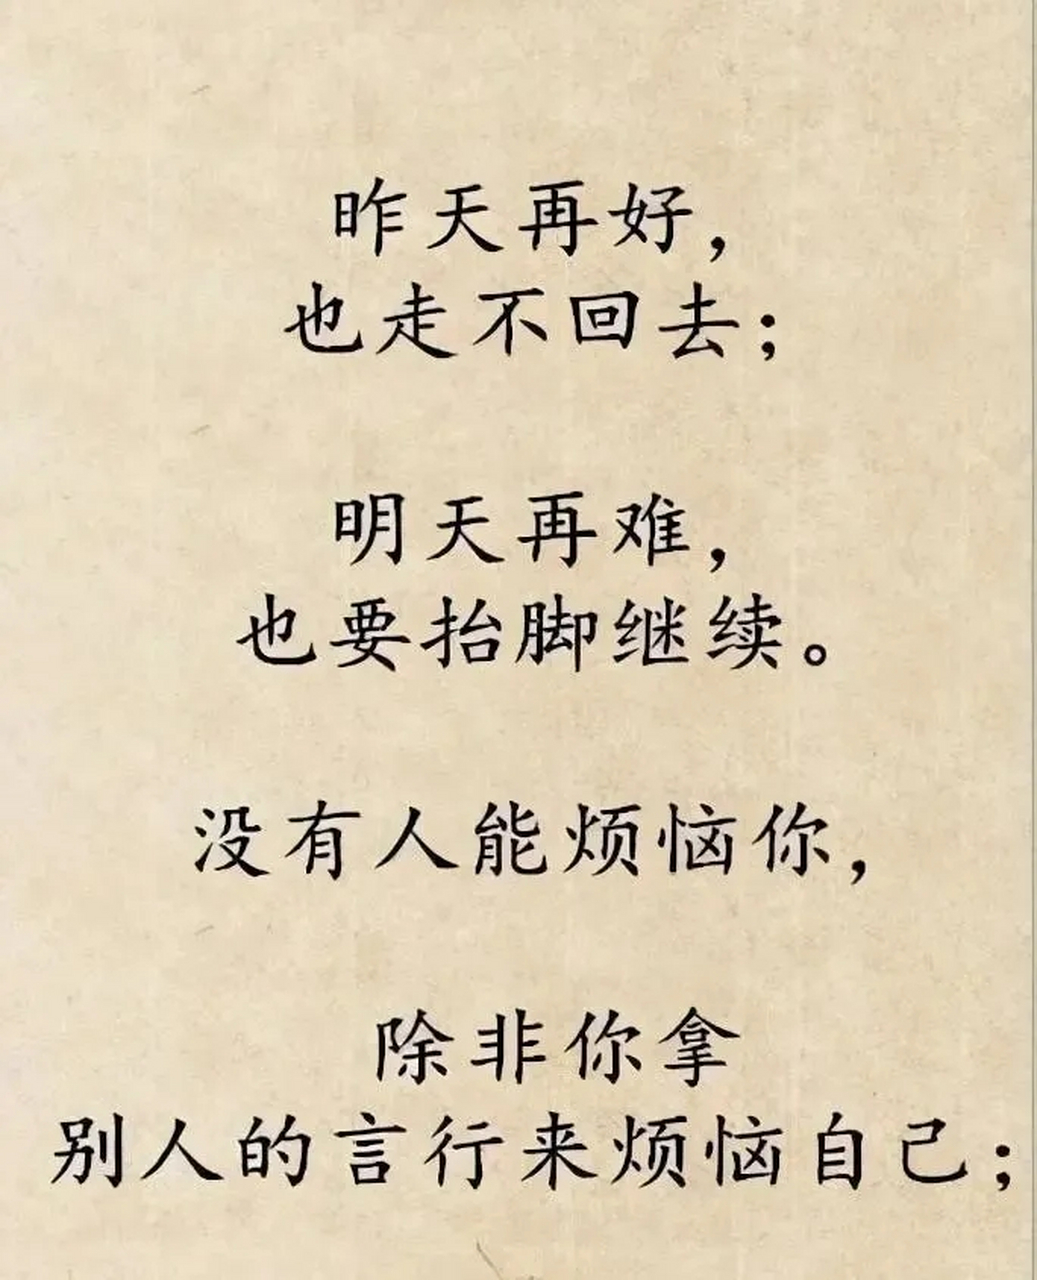 昨天再好，
也走不回去；
明天再难，
也要抬脚继续。
没有人能烦恼你，
除非你拿
别人的言行来烦恼自己；